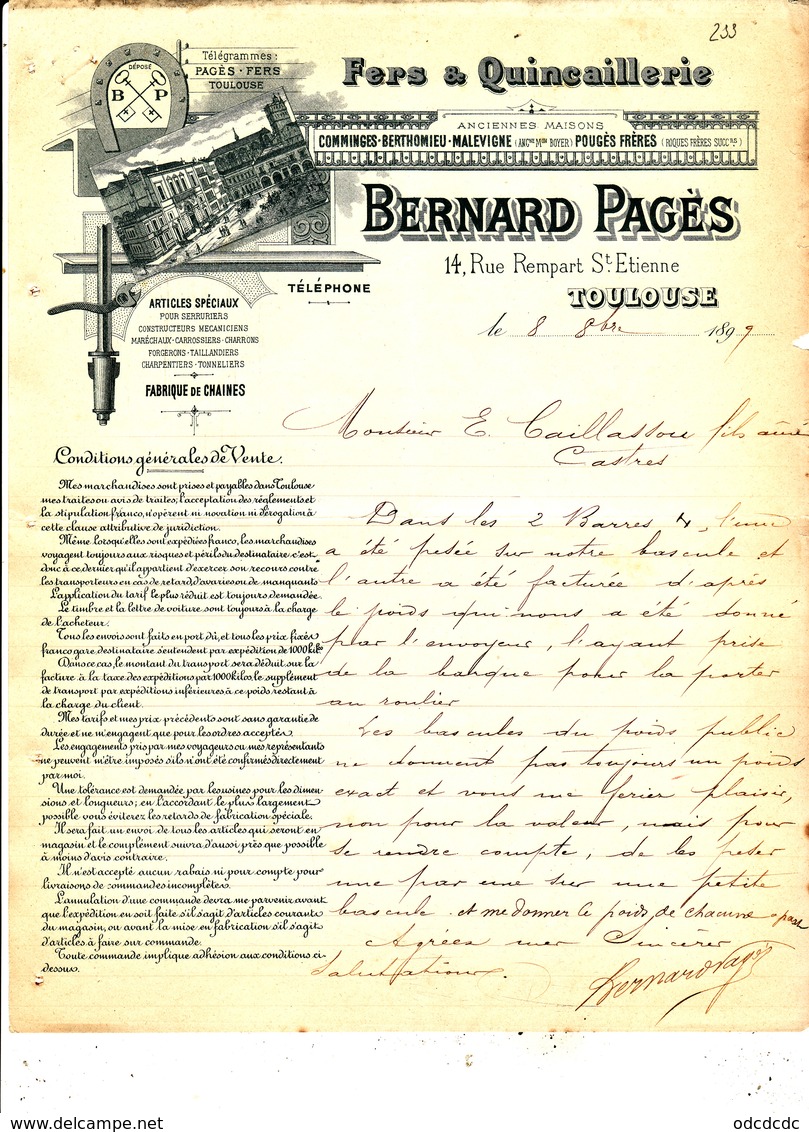 233
DÉPOSÉ
B P
Télégrammes :
PAGÈS - FERS
TOULOUSE
Fers & Quincaillerie
ANCIENNES MAISONS
COMMINGES-BERTHOMIEU-MALEVIGNE (ANCne Mson BOYER) POUGÈS FRÈRES (ROQUES FRÈRES SUCCrs)
BERNARD PAGÈS
14, Rue Rempart St. Etienne
TOULOUSE
TÉLÉPHONE
ARTICLES SPÉCIAUX
POUR SERRURIERS
CONSTRUCTEURS MECANICIENS
MARÉCHAUX-CARROSSIERS-CHARRONS
FORGERONS-TAILLANDIERS
CHARPENTIERS-TONNELIERS
FABRIQUE DE CHAINES
le 8 8bre 1899
Monsieur E. Caillassou fils aîné
Castres
Conditions générales de Vente.
Mes marchandises sont prises et payables dans Toulouse
mes traites ou avis de traites; l'acceptation des règlements et
la stipulation franco, n'opèrent ni novation ni dérogation à
cette clause attributive de juridiction.
Même lorsqu'elles sont expédiées franco, les marchandises
voyagent toujours aux risques et périls du destinataire c'est
donc à ce dernier qu'il appartient d'exercer son recours contre
les transporteurs en cas de retard, d'avaries ou de manquants
L'application du tarif le plus réduit est toujours demandée.
Le timbre et la lettre de voiture sont toujours à la charge
de l'acheteur.
Tous les envois sont faits en port dû, et tous les prix fixés
franco gare destinataire s'entendent par expédition de 1000 kilos
Dans ce cas, le montant du transport sera déduit sur la
facture à la taxe des expéditions par 1000 kilos, le supplément
de transport par expéditions inférieures à ce poids restant à
la charge du client.
Mes tarifs et mes prix précédents sont sans garantie de
durée et ne m'engagent que pour les ordres acceptés.
Les engagements pris par mes voyageurs ou mes représentants
ne peuvent m'être imposés s'ils n'ont été confirmés directement
par moi.
Une tolérance est demandée par les usines pour les dimen-
sions et longueurs; en l'accordant le plus largement
possible vous éviterez les retards de fabrication spéciale.
Il sera fait un envoi de tous les articles qui seront en
magasin et le complément suivra d'aussi près que possible
à moins d'avis contraire.
Il n'est accepté aucun rabais ni pour compte pour
livraisons de commandes incomplètes.
L'annulation d'une commande devra me parvenir avant
que l'expédition en soit faite s'il s'agit d'articles courants
du magasin, ou avant la mise en fabrication s'il s'agit
d'articles à faire sur commande.
Toute commande implique adhésion aux conditions ci-
dessus.
Dans les 2 Barres , l'une
a été pesée sur notre bascule et
l'autre a été facturée d'après
le poids qui nous a été donné
par l'envoyeur, l'ayant prise
de la barque pour la porter
au roulier
Les bascules du poids public
ne donnent pas toujours un poids
exact et vous me feriez plaisir,
non pour la valeur, mais pour
se rendre compte, de les peser
une par une sur une petite
bascule et me donner le poids de chacune
Agréez mes Sincères
Salutations.
Bernard Pagès
delcampe.net
odcdcdc